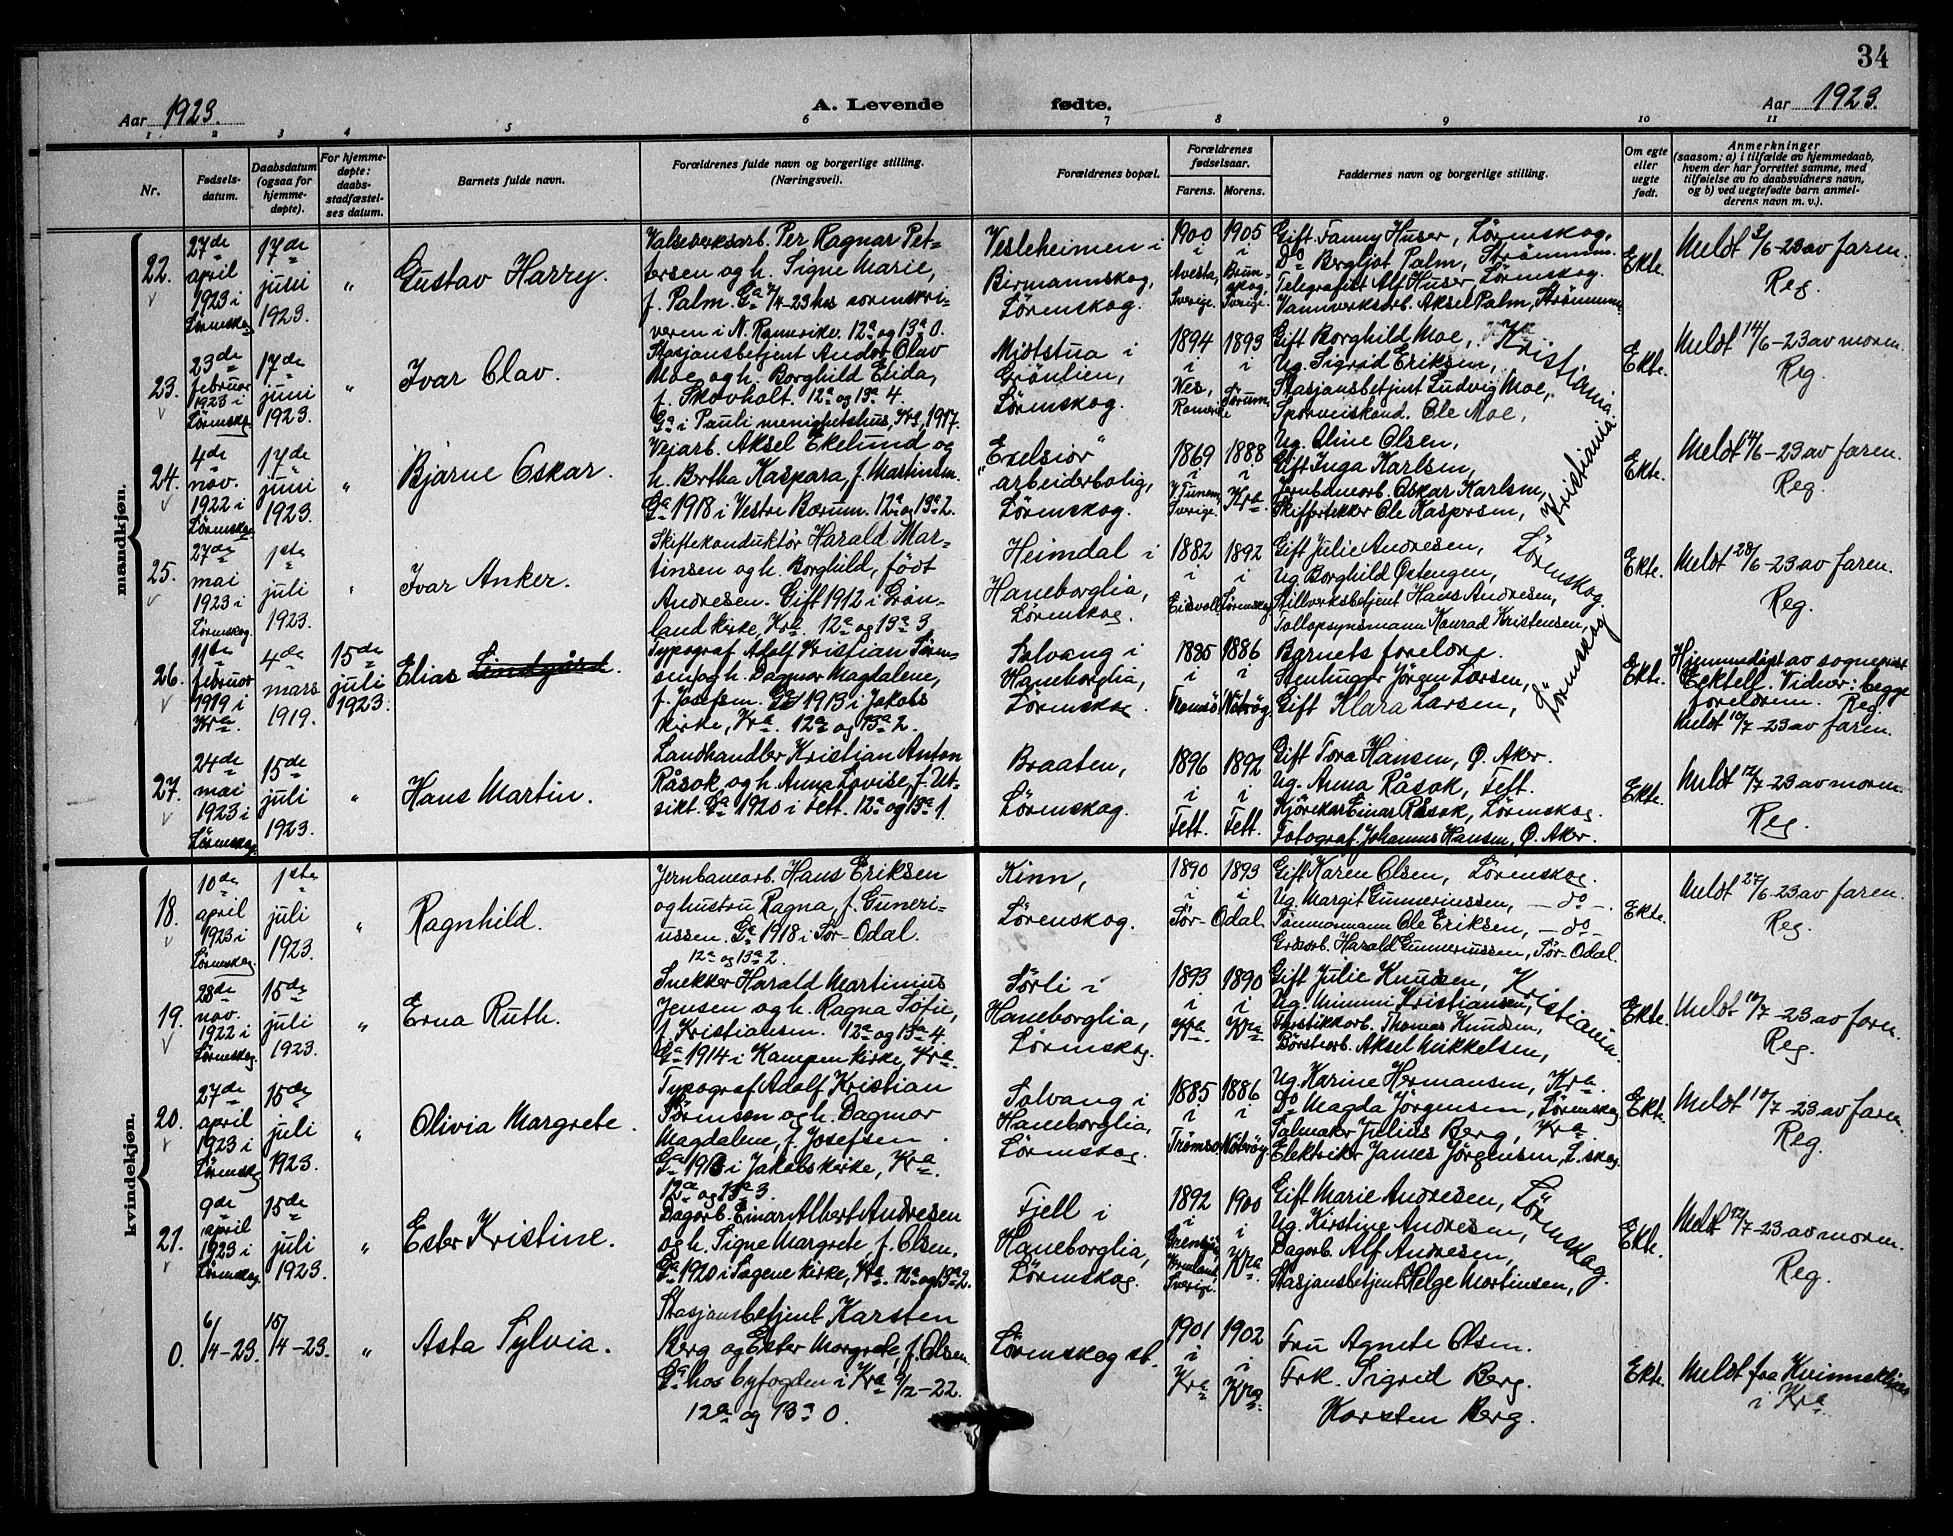 34
Aar 1923.
A. Levende fødte.
Aar 1923.
1. 2 3 4 5 6 7 8 9 10 11
Nr.
Fødsels-
datum.
Daabsdatum
(ogsaa for
hjemme-
døpte).
For hjemme-
døpte:
daabs-
stadfæstel-
ses datum.
Barnets fulde navn.
Forældrenes fulde navn og borgerlige stilling.
(Næringsvei).
Forældrenes bopæl.
Forældrenes
fødselsaar.
Farens. Morens.
Faddernes navn og borgerlige stilling.
Om egte
eller
uegte
født.
Anmerkninger
(saasom: a) i tilfælde av hjemmedaab,
hvem der har forrettet samme, med
tilføielse av to daabsvidners navn,
og b) ved uegtefødte barn anmel-
derens navn m. v.).
mandkjøn.
22.
27de
april
1923 i
Lørenskog
17de
juni
1923.
"
Gustav Harry.
Valseverksarb. Per Ragnar Pet-
tersen og h. Signe Marie,
f. Palm. Ga 7/4-23 hos sorenskri-
veren i N. Romerike. 12a og 13a 0.
Vesleheimen i
Biermannskog,
Lørenskog.
1900
i
Avesta,
Sverige.
1905
i
Brun-
skog,
Sverige.
Gift Fanny Huser, Lørenskog.
Do Bergliot Palm, Strømmen.
Telegrafist Alf Huser, Lørenskog.
Vannverksarb. Aksel Palm, Strømmen
Ekte.
Meldt 2/6-23 av faren.
Reg.
23.
23de
februar
1923 i
Lørenskog
17de
juni
1923.
"
Ivar Olav.
Stasjonsbetjent Andor Olav
Moe og h. Borghild Elida,
f. Skovholt. 12a og 13a 4.
Ga i Pauli menighetshus, Kra, 1917.
Mjøtstua i
Grønlien,
Lørenskog.
1894
i
Nes,
Romerike
1893
i
Sørum.
Gift Borghild Moe,
Ug. Sigrid Eriksen,
Stasjonsbetjent Ludvig Moe,
Sporveiskond. Ole Moe,
Kristiania.
Ekte.
Meldt 14/6-23 av moren.
Reg.
24.
4de
nov.
1922 i
Lørenskog
17de
juni
1923.
"
Bjarne Oskar.
Veiarb. Aksel Ekelund og
h. Bertha Kaspara, f. Martinsen.
Ga 1918 i Vestre Bærum. 12a og 13a 2.
"Exelsior"
arbeiderbolig,
Lørenskog.
1869
i
Sverige.
1888
i
Kra.
Ug. Oline Olsen,
Gift Inga Karlsen,
Jernbanearb. Oskar Karlsen,
Skiffertekker Ole Kaspersen,
Kristiania.
Ekte.
Meldt 14/6-23 av faren.
Reg.
25.
27de
mai
1923 i
Lørenskog.
1ste
juli
1923.
"
Ivar Anker.
Skiftekonduktør Harald Mar-
tinsen og h. Borghild, født
Andresen. Gift 1912 i Grøn-
land kirke, Kra. 12a og 13a 3
Heimdal i
Haneborglia,
Lørenskog.
1882
i
Eidsvoll
1892
i
Lørenskog
Gift Julie Andresen,
Ug. Borghild Østengen,
Stillverksbetjent Hans Andresen,
Tollopsynsmann Konrad Kristensen,
Lørenskog.
Ekte.
Meldt 28/6-23 av faren.
Reg.
26.
11te
februar
1919 i
Kra.
4de
mars
1919.
15de
juli
1923.
Elias Lindgård.
Typograf Adolf Kristian Sören-
sen og h. Dagmar Magdalene,
f. Josefsen. Ga 1913 i Jakobs
kirke, Kra. 12a og 13a 2.
Solvang i
Haneborglia,
Lørenskog.
1885
i
Tromsö
1886
i
Nøtterøy.
Barnets foreldre.
Stenhugger Jörgen Larsen,
Gift Klara Larsen,
Lörenskog
Ekte.
Hjemmedøpt av sogneprest
Ecktell. Vidner: begge
foreldrene. Reg.
Meldt 10/7-23 av faren.
27.
24de
mai
1923 i
Lørenskog.
15de
juli
1923.
"
Hans Martin.
Landhandler Kristian Anton
Råsok og h. Anna Lovise, f. Ut-
sikt. Ga 1920 i Fett. 12a og 13a 1.
Braaten,
Lørenskog.
1896
i
Fett.
1892
i
Fett.
Gift Tora Hansen, Ø. Aker.
Ug. Anna Råsok, Fett.
Kjörekar Einar Råsok, Lørenskog.
Fotograf Johannes Hansen, Ø. Aker.
Ekte.
Meldt 12/7-23 av moren.
Reg.
kvindekjøn.
18.
10de
april
1923 i
Lørenskog.
1ste
juli
1923.
"
Ragnhild.
Jernbanearb. Hans Eriksen
og hustru Ragna, f. Guneri-
ussen. Ga 1918 i Sør-Odal.
12a og 13a 2.
Kinn,
Lørenskog.
1890 1893
i i
Sør-Odal.
Gift Karen Olsen, Lørenskog.
Ug. Margit Gunneriussen, -do-.
Tömmermann Ole Eriksen, -do-
Grdsarb. Harald Gunneriussen, Sør-Odal.
Ekte.
Meldt 27/6-23 av faren.
Reg.
19.
28de
nov.
1922 i
Lørenskog.
15de
juli
1923.
"
Erna Ruth.
Snekker Harald Martinius
Jensen og h. Ragna Sofie,
f. Kristiansen. 12a og 13a 4.
Ga 1914 i Kampen kirke, Kra.
Sörli i
Haneborglia,
Lørenskog.
1893
i
Kra.
1890
i
Kra
Gift Julie Knudsen,
Ug. Mimmi Kristiansen,
Thomas Knudsen,
Börstearb. Aksel Mikkelsen,
Kristiania.
Ekte.
Meldt 10/7-23 av faren.
Reg.
20.
27de
april
1923 i
Lørenskog
15de
juli
1923.
"
Olivia Margrete.
Typograf Adolf Kristian
Sörensen og h. Dagmar
Magdalene, f. Josefsen.
Ga 1913 i Jakobs kirke, Kra.
12a og 13a 3.
Solvang i
Haneborglia,
Lørenskog.
1885
i
Tromsø
1886
i
Nøtterøy
Ug. Karine Hermansen, Kra.
Do Magda Jörgensen, Lørenskog
Salmaker Julius Berg, Kra
Elektriker James Jörgensen, L.skog.
Ekte.
Meldt 10/7-23 av faren.
Reg.
21.
9de
april
1923 i
Lørenskog.
15de
juli
1923.
"
Ester Kristine.
Dagarb. Einar Albert Andresen
og h. Signe Margrete, f. Olsen.
Ga 1920 i Sagene kirke, Kra. 12a og 13a 2.
Fjell i
Haneborglia,
Lørenskog.
1892
i
Sverige.
1900
i
Kra.
Gift Marie Andresen,
Ug. Kirstine Andresen,
Dagarb. Alf Andresen,
Stasjonsbetjent Helge Martinsen,
Lørenskog.
Ekte.
Meldt 12/7-23 av moren.
Reg.
0.
6/4-23.
15/4-23.
"
Asta Sylvia.
Stasjonsbetjent Karsten
Berg og Ester Margrete, f. Olsen.
Ga hos byfogden i Kra 9/12-22.
12a og 13a 0.
Lørenskog st.
1901
i
Kra
1902
i
Kra.
Fru Agnete Olsen.
Frk. Sigrid Berg.
Karsten Berg.
Ekte.
Meldt fra Kvinneklinikken
i Kra.